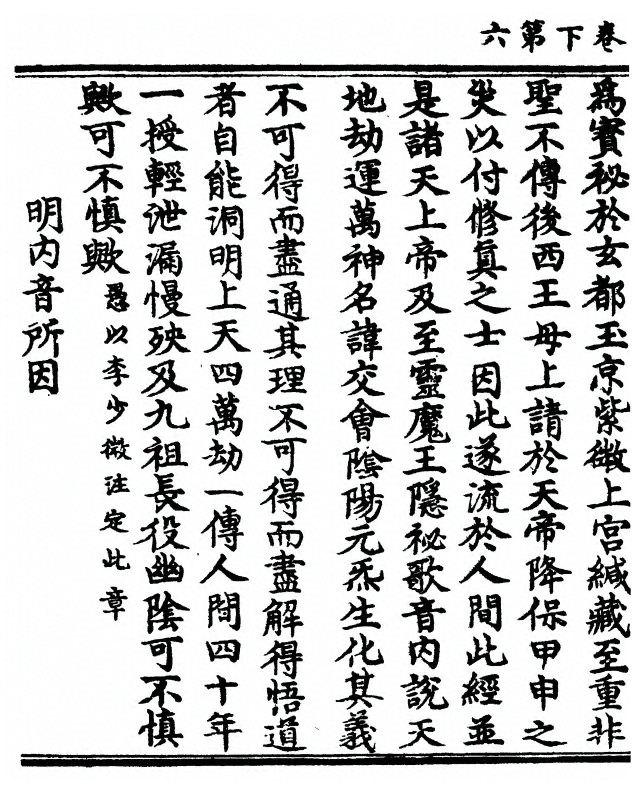 卷下第六
為寳祕於玄都玉京紫微上宮緘藏至重非
聖不傳後西王母上請於天帝降保甲申之
災以付修真之士因此遂流於人間此經並
是諸天上帝及至靈魔王隱祕歌音内說天
地劫運萬神名諱交會隂陽元炁生化其義
不可得而盡通其理不可得而盡解得悟道
者自能洞明上天四萬劫一傳人間四十年
一授輕泄漏慢殃及九祖長役幽隂可不慎
歟可不慎歟愚以李少微注定此章
明内音所因